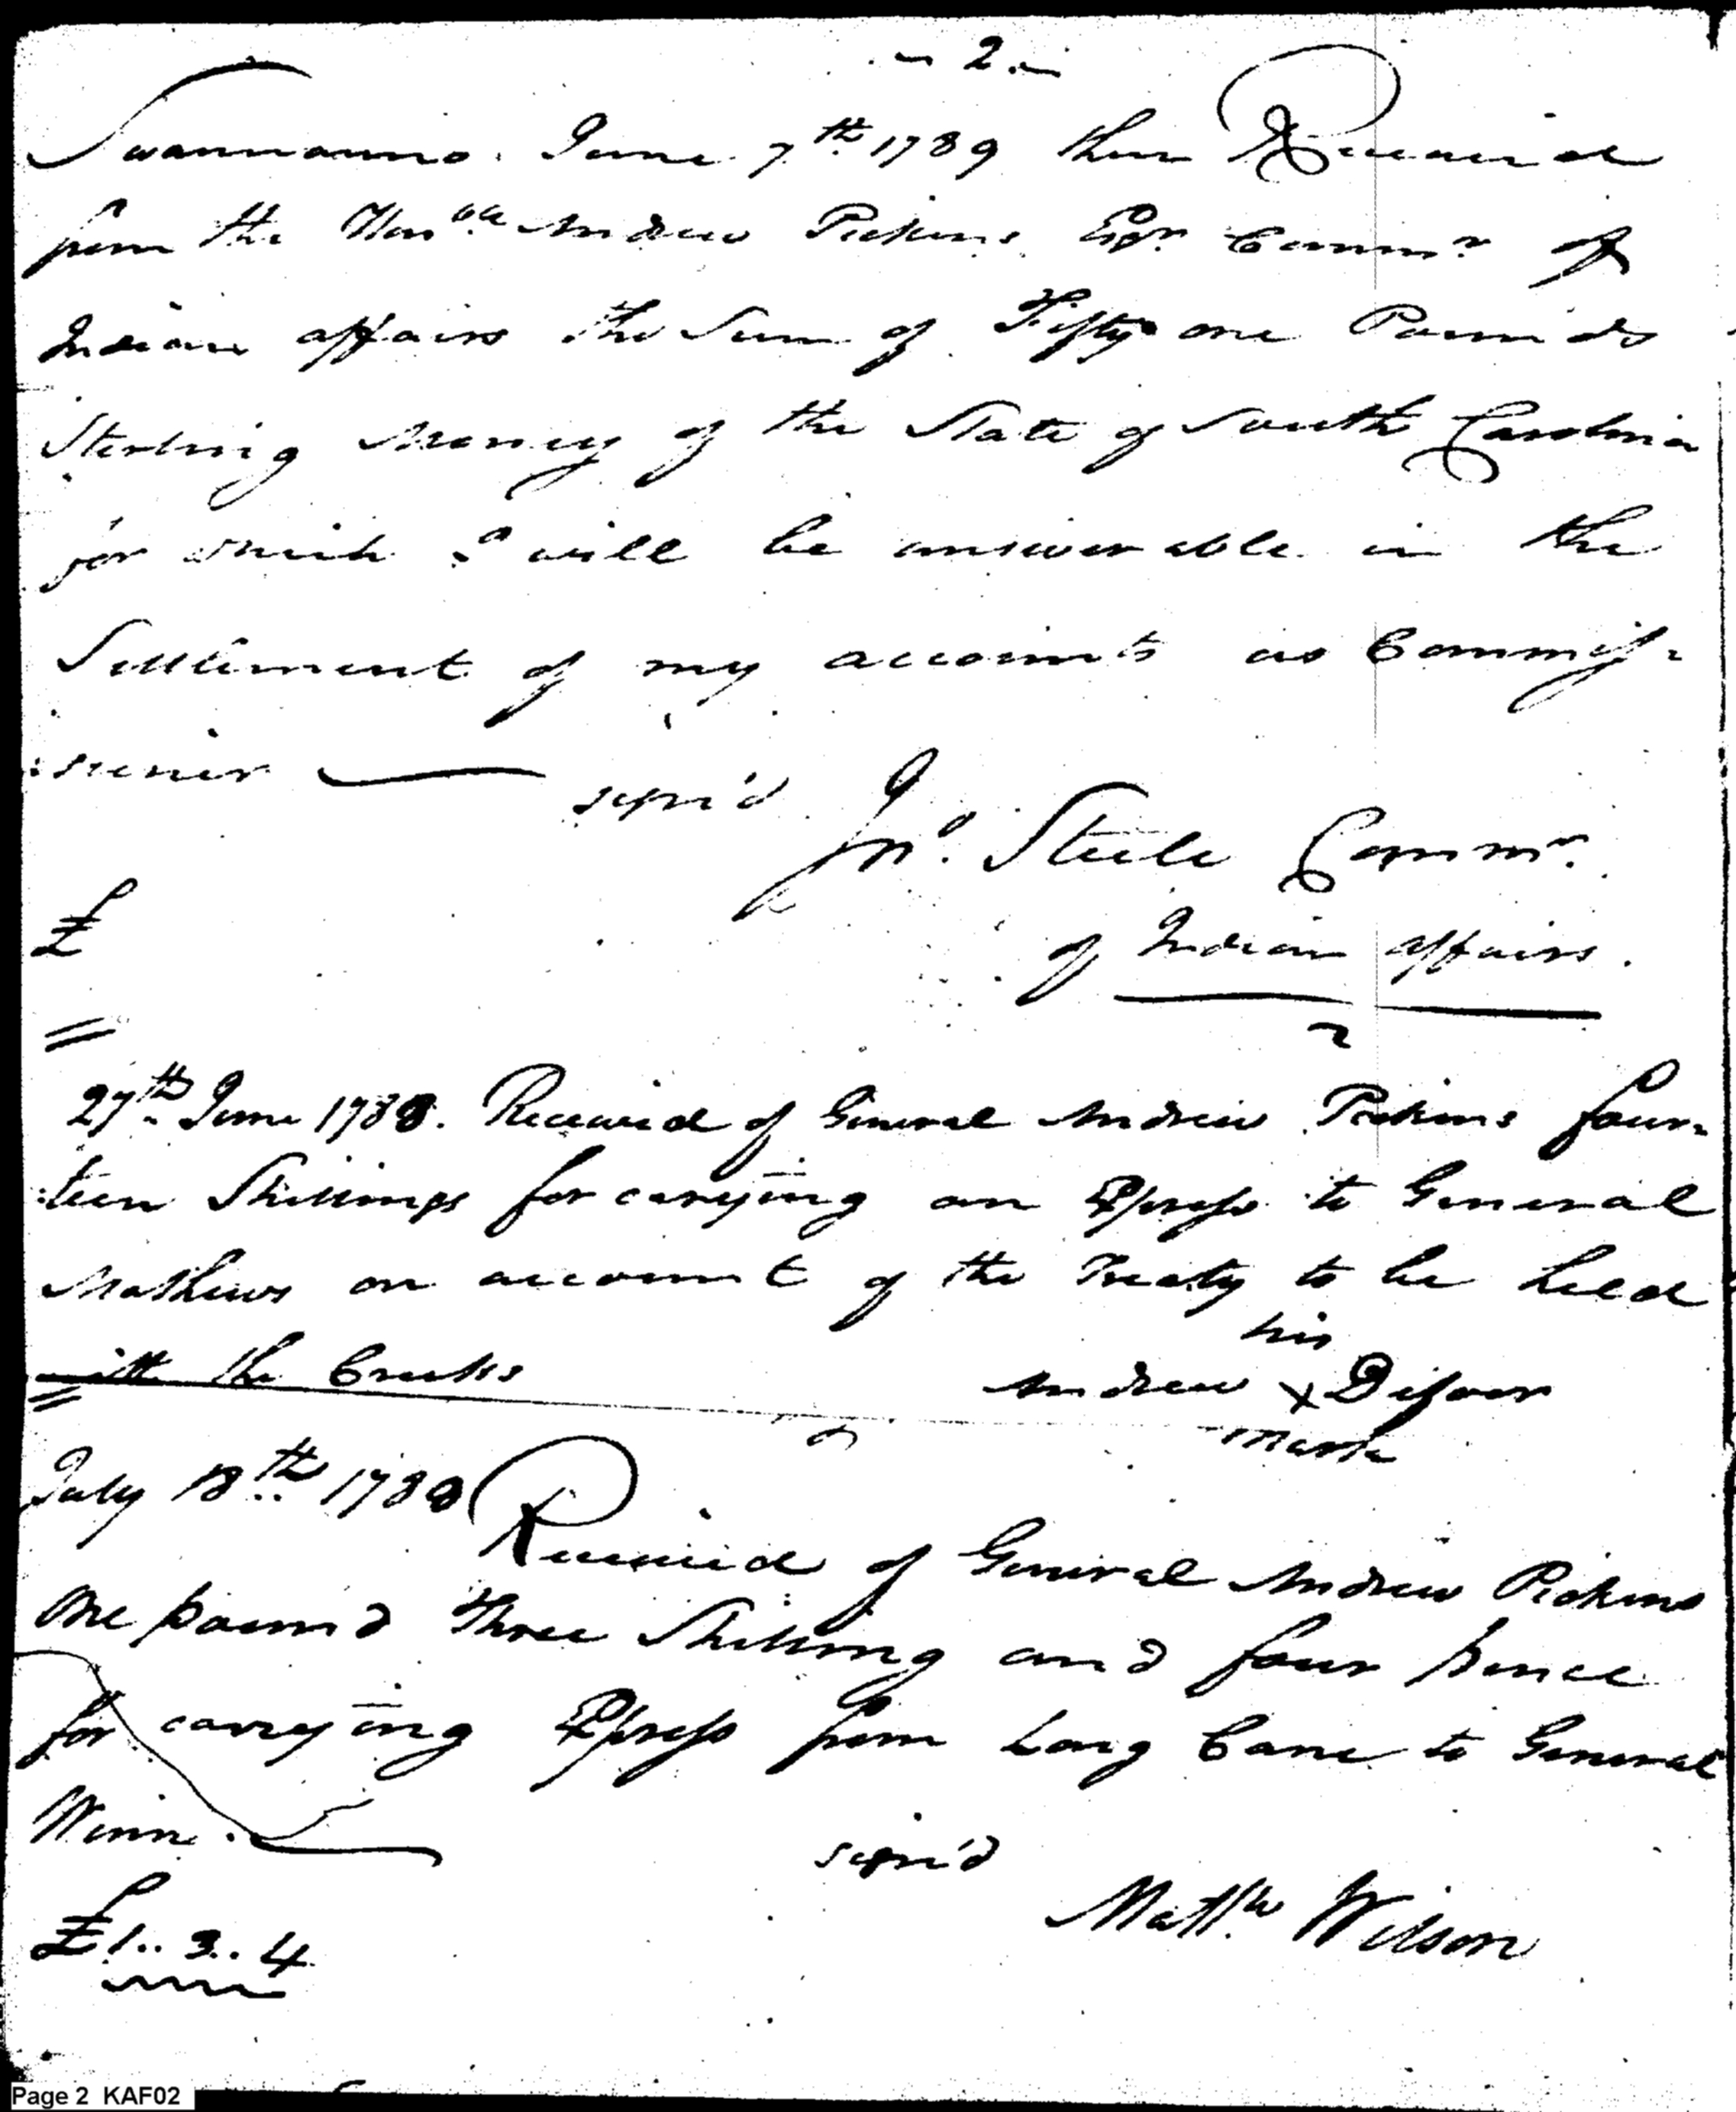 - 2. -
Swannanno. June 7th 1789 then Received
from the Honble Andrew Pickens Esqr. Commr. of
Indian affairs the Sum of Fifty one Pounds
Sterling Money of the State of South Carolina
for which I will be answerable in the
Settlement of my accounts as Commiss-
:sioner
sign'd
Jno. Steele Commr.
of Indian affairs.
£
27th June 1788. Received of General Andrew Pickens four-
:teen Shillings for carrying an Express to General
Mathews on account of the Treaty to be held
with the Creeks
his
Andrew X
mark
July 18th 1788
Received of General Andrew Pickens
One pound Three Shilling and four pence
for carrying Express from Long Cane to General
Winn.
sign'd
Mattw. Wilson
£1..3..4
Page 2 KAF02